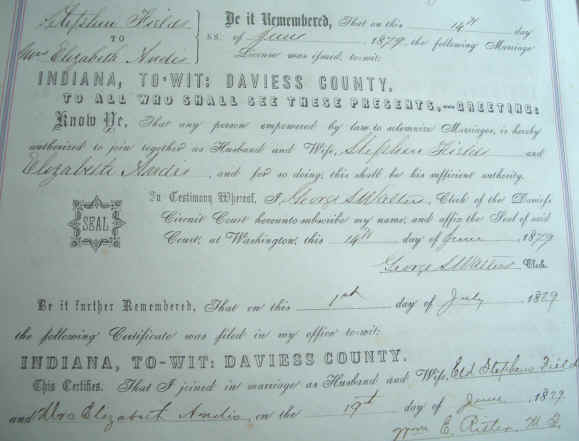 Stephen Fields
TO
Mrs Elizabeth Andis
ss.
Be it Remembered, That on this 14th day
of June 1879, the following Marriage
License was issued, to-wit:
INDIANA, TO-WIT: DAVIESS COUNTY.
TO ALL WHO SHALL SEE THESE PRESENTS,—GREETING:
Know Ye, That any person empowered by law to solemnize Marriages, is hereby
authorized to join together as Husband and Wife, Stephen Fields and
Elizabeth Andis, and for so doing, this shall be his sufficient authority.
SEAL
In Testimony Whereof, I George S Walters, Clerk of the Daviess
Circuit Court hereunto subscribe my name, and affix the Seal of said
Court, at Washington, this 14th day of June, 1879
George S Walters Clerk
Be it further Remembered, That on this 1st day of July, 1879
the following Certificate was filed in my office to-wit:
INDIANA, TO-WIT: DAVIESS COUNTY.
This Certifies, That I joined in marriage as Husband and Wife, Eld Stephen Field
and Mrs Elizabeth Andis, on the 19th day of June, 1879
Wm E. Ritter M. G.